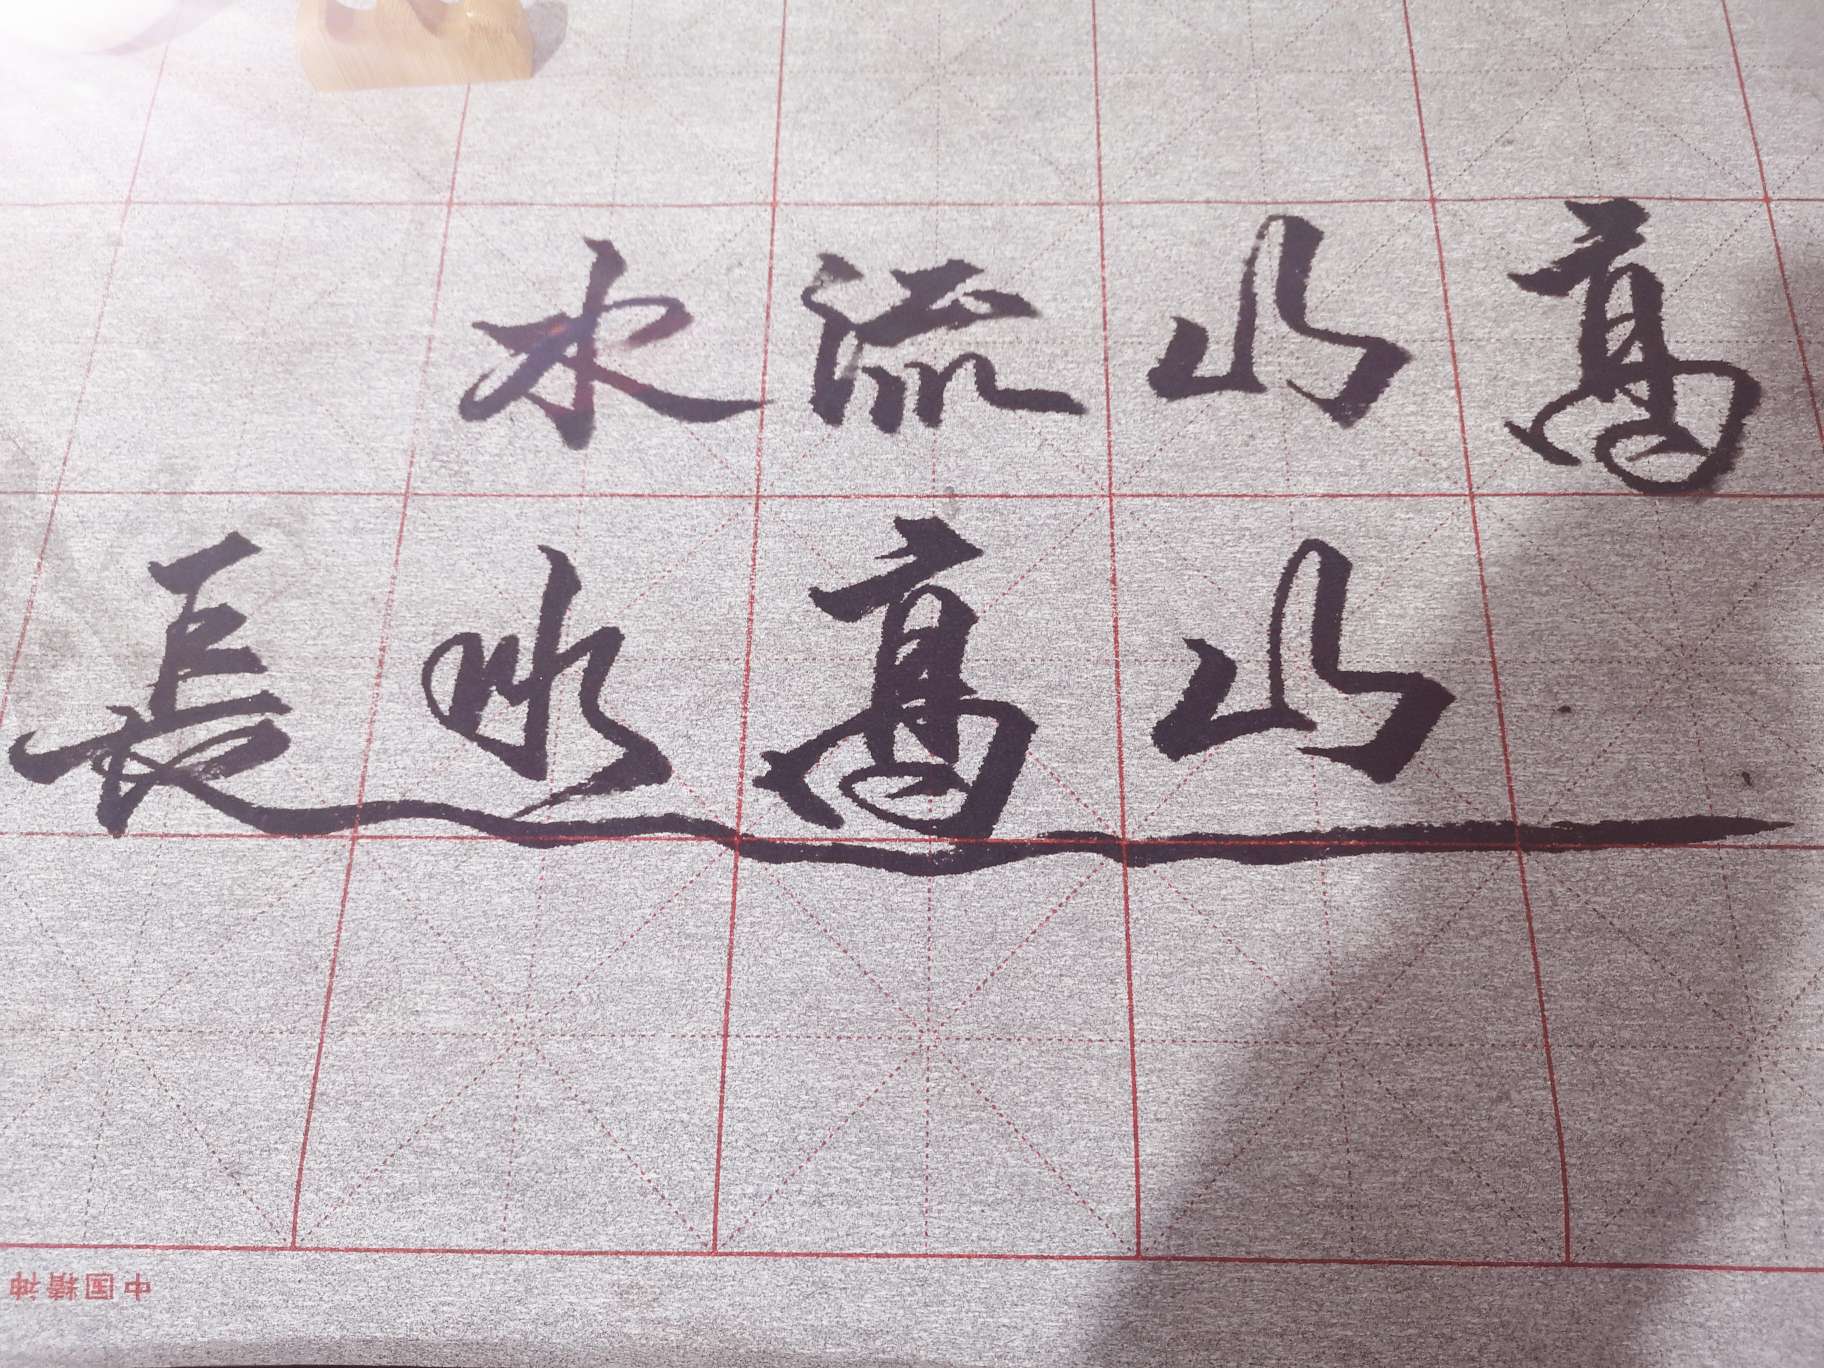 高山流水
山高水長
中国精神